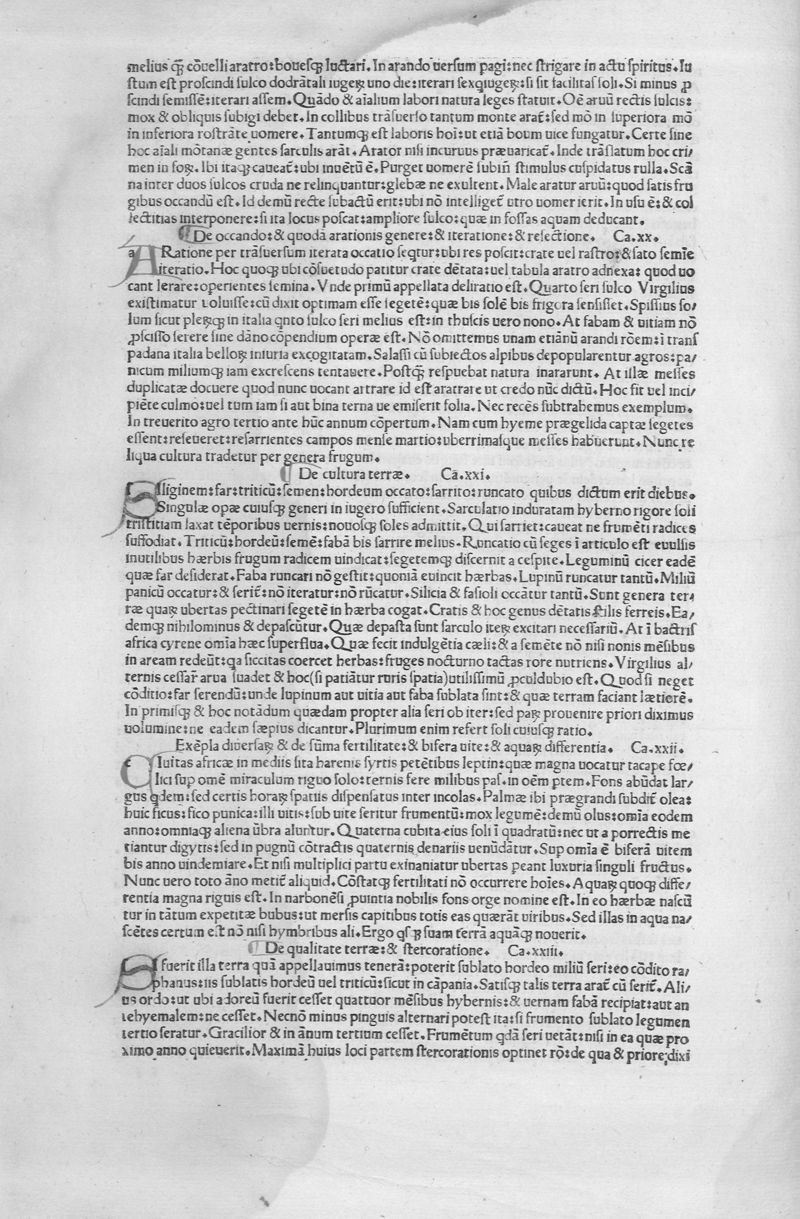 melius q̄ cōuelli aratro:boueſq; luctari.In arando uerſum pagi:nec ſtrigare in actu ſpiritus.Iu
ſtum eſt proſcindi ſulco dodrātali iugeꝝ uno die:iterari ſexqiugeꝝ:ſi ſit facilitaſ ſoli.Si minus ꝓ
ſcindi ſemiſſē:iterari aſſem.Quādo & aīalium labori natura leges ſtatuit.Oē aruū rectis ſulcis:
mox & obliquis ſubigi debet.In collibus trāſuerſo tantum monte araƭ:ſed mō in ſuperiora mō
in inferiora roſtrāte uomere.Tantumq; eſt laboris hoī:ut etiā boum uice fungatur.Certe ſine
hoc aīali mōtanæ gentes ſarculis arāt.Arator niſi incuruus præuaricaƭ.Inde trāſlatum hoc cri/
men in foꝝ.Ibi itaq; caueaƭ:ubi inuētū ē.Purget uomerē ſubiñ ſtimulus cuſpidatus rulla.Scā
na inter duos ſulcos cruda ne relinquantur:glebæ ne exultent.Male aratur aruū:quod ſatis fru
gibus occandū eſt.Id demū recte ſubactū erit:ubi nō intelligeƭ utro uomer ierit.In uſu ē:& col
lectitias interponere:ſi ita locus poſcat:ampliore ſulco:quæ in foſſas aquam deducant.
¶ De occando:& quodā arationis genere:& iteratione:& refectione. Ca.xx.
aRatione per trāſuerſum iterata occatio ſeqtur:ubi res poſcit:crate uel raſtro:& ſato ſemīe
iteratio.Hoc quoq; ubi cōſuetudo patitur crate dētata:uel tabula aratro adnexa:quod uo
cant lerare:operientes ſemina.Vnde primū appellata deliratio eſt.Quarto ſeri ſulco Virgilius
exiſtimatur uoluiſſe:cū dixit optimam eſſe ſegetē:quæ bis ſolē bis frigora ſenſiſſet.Spiſſius ſo/
lum ſicut pleꝝq; in italia qnto ſulco ſeri melius eſt:in thuſcis uero nono.At fabam & uitiam nō
ꝓſciſſo ſerere ſine dāno cōpendium operæ eſt.Nō omittemus unam etiānū arandi rōem:ī tranſ
padana italia belloꝝ iniuria excogitatam.Salaſſi cū ſubiectos alpibus depopularentur agros:pa/
nicum miliumq; iam excreſcens tentauere.Poſtq̄ reſpuebat natura inararunt. At illæ meſſes
duplicatæ docuere quod nunc uocant artrare id eſt aratrare ut credo nūc dictū.Hoc fit uel inci/
piēte culmo:uel tum iam ſi aut bina terna ue emiſerit folia.Nec recēs ſubtrahemus exemplum.
In treuerito agro tertio ante hūc annum cōpertum.Nam cum hyeme prægelida captæ ſegetes
eſſent:reſeueret:reſarrientes campos menſe martio:uberrimaſque meſſes habuerunt.Nunc re
liqua cultura tradetur per genera frugum.
¶ De cultura terræ. Ca.xxi.
SIliginem:far:triticū:ſemen:hordeum occato:ſarrito:runcato quibus dictum erit diebus.
Singulæ opæ cuiuſq; generi in iugero ſufficient.Sarculatio induratam hyberno rigore ſoli
triſtitiam laxat tēporibus uernis:nouoſq; ſoles admittit.Qui ſarriet:caueat ne frumēti radices
ſuffodiat.Triticū:hordeū:ſemē:fabā bis ſarrire melius.Runcatio cū ſeges ī articulo eſt euulſis
inutilibus hærbis frugum radicem uindicat:ſegetemq; diſcernit a ceſpite.Leguminū cicer eadē
quæ far deſiderat.Faba runcari nō geſtit:quoniā euincit hærbas.Lupinū runcatur tantū.Miliū
panicū occatur:& ſeriƭ:nō iteratur:nō rūcatur.Silicia & faſioli occātur tantū.Sunt genera ter/
ræ quaꝝ ubertas pectinari ſegetē in hærba cogat.Cratis & hoc genus dētatis ſtilis ferreis.Ea/
demq; nihilominus & depaſcūtur.Quæ depaſta ſunt ſarculo iteꝝ excitari neceſſariū.At ī bactrīſ
africa cyrene omīa hæc ſuperflua.Quæ fecit indulgētia cæli:& a ſemēte nō niſi nonis mēſibus
in aream redeūt:qa ſiccitas coercet herbas:fruges nocturno tactas rore nutriens.Virgilius al/
ternis ceſſaꝛ arua ſuadet & hoc(ſi patiātur ruris ſpatia)utiliſſimū ꝓculdubio eſt.Quod ſi neget
cōditio:far ſerendū:unde lupinum aut uitia aut faba ſublata ſint:& quæ terram faciant lætiorē.
In primiſq; & hoc notādum quædam propter alia ſeri ob iter:ſed paꝝ prouenire priori diximus
uolumine:ne eadem ſæpius dicantur.Plurimum enim refert ſoli cuiuſq; ratio.
Exēpla diuerſaꝝ & de ſūma fertilitate:& bifera uite:& aquaꝝ differentia. Ca.xxii.
CIuitas africæ in mediis ſita harenis ſyrtis petētibus leptin:quæ magna uocatur tacape fœ/
lici ſup omē miraculum riguo ſolo:ternis fere milibus paſ.in oēm ptem.Fons abūdat lar/
gus qdem:ſed certis horaꝝ ſpatiis diſpenſatus inter incolas.Palmæ ibi prægrandi ſubdiƭ olea:
huic ficus:fico punica:illi uitis:ſub uite ſeritur frumentū:mox legumē:demū olus:omīa eodem
anno:omniaq; aliena ūbra aluntur.Quaterna cubita eius ſoli ī quadratū:nec ut a porrectis me
tiantur digytis:ſed in pugnū cōtractis quaternis denariis uenūdātur.Sup omīa ē biferā uitem
bis anno uindemiare.Et niſi multiplici partu exinaniatur ubertas peant luxuria ſinguli fructus.
Nunc uero toto āno metiƭ aliquid.Cōſtatq; fertilitati nō occurrere hoīes.Aquaꝝ quoq; diffe/
rentia magna riguis eſt.In narbonēſi ꝓuintia nobilis fons orge nomine eſt.In eo hærbæ naſcū
tur in tātum expetitæ bubus:ut merſis capitibus totis eas quærāt uiribus.Sed illas in aqua na/
ſcētes certum eſt nō niſi hymbribus ali.Ergo qſq; ſuam terrā aquāq; nouerit.
¶ De qualitate terræ:& ſtercoratione. Ca.xxiii.
SI fuerit illa terra quā appellauimus tenerā:poterit ſublato hordeo miliū ſeri:eo cōdito ra/
phanus:iis ſublatis hordeū uel triticū:ſicut in cāpania.Satiſq; talis terra araƭ cū ſeriƭ.Ali/
us ordo:ut ubi adoreū fuerit ceſſet quattuor mēſibus hybernis:& uernam fabā recipiat:aut an
tehyemalem:ne ceſſet.Necnō minus pinguis alternari poteſt ita:ſi frumento ſublato legumen
tertio ſeratur.Gracilior & in ānum tertium ceſſet.Frumētum qdā ſeri uetāt:niſi in ea quæ pro
ximo anno quieuerit.Maximā huius loci partem ſtercorationis optinet rō:de qua & priore dixi